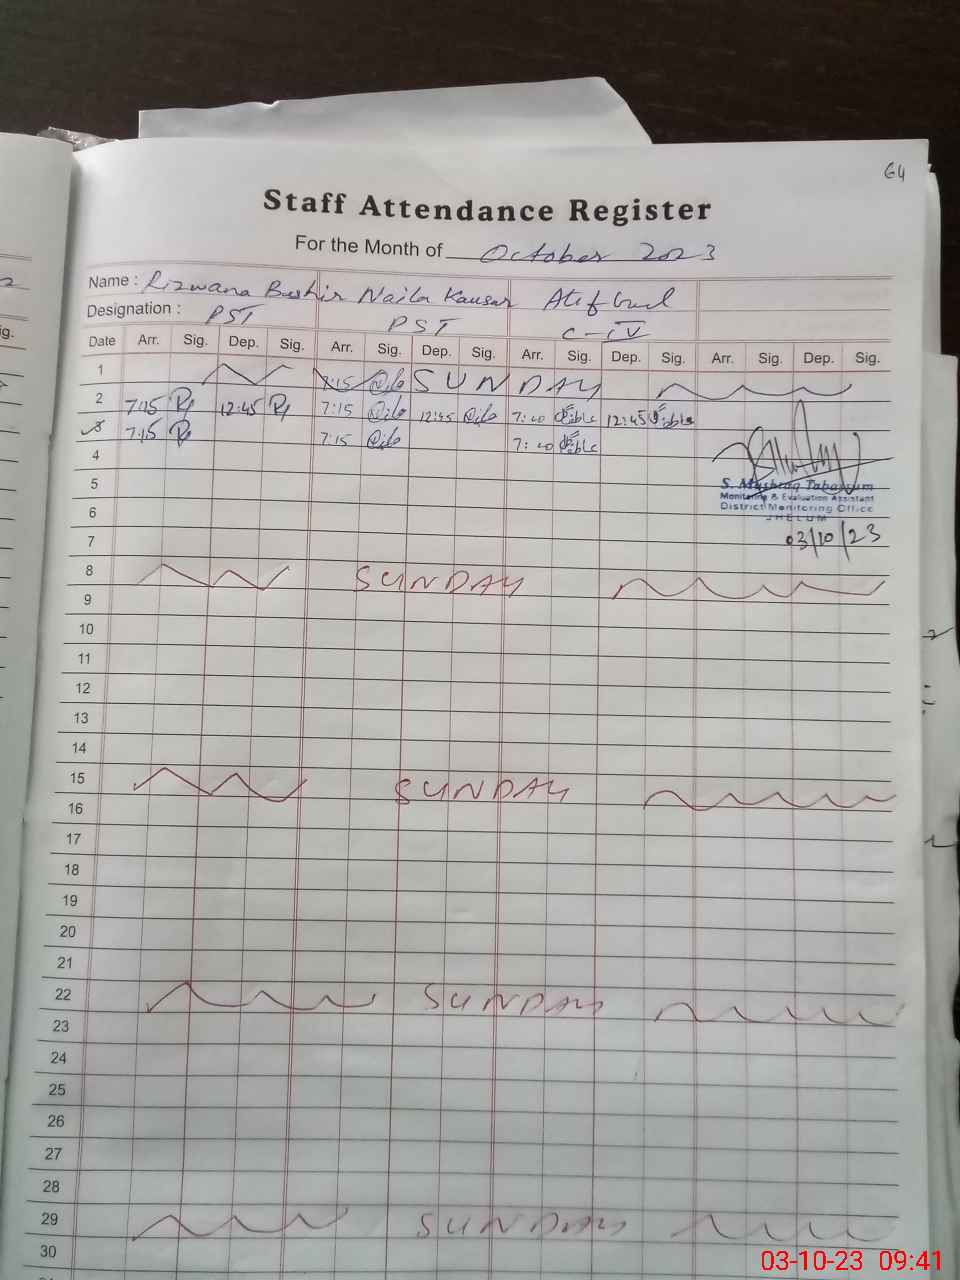 64
Staff Attendance Register
For the Month of October 2023
Name : Rizwana Bashir Naila Kausar Atif Gul
Designation : PST PST C-IV
Date Arr. Sig. Dep. Sig. Arr. Sig. Dep. Sig. Arr. Sig. Dep. Sig. Arr. Sig. Dep. Sig.
1 7:15 SUNDAY
2 7:15 12:45 7:15 12:45 7:40 12:45
3 7:15 7:15 7:40
4
5
S. Mushtaq Tabassum
Monitoring & Evaluation Assistant
District Monitoring Office
JHELUM
6
7 03/10/23
8 SUNDAY
9
10
11
12
13
14
15 SUNDAY
16
17
18
19
20
21
22 SUNDAY
23
24
25
26
27
28
29 SUNDAY
30
03-10-23 09:41